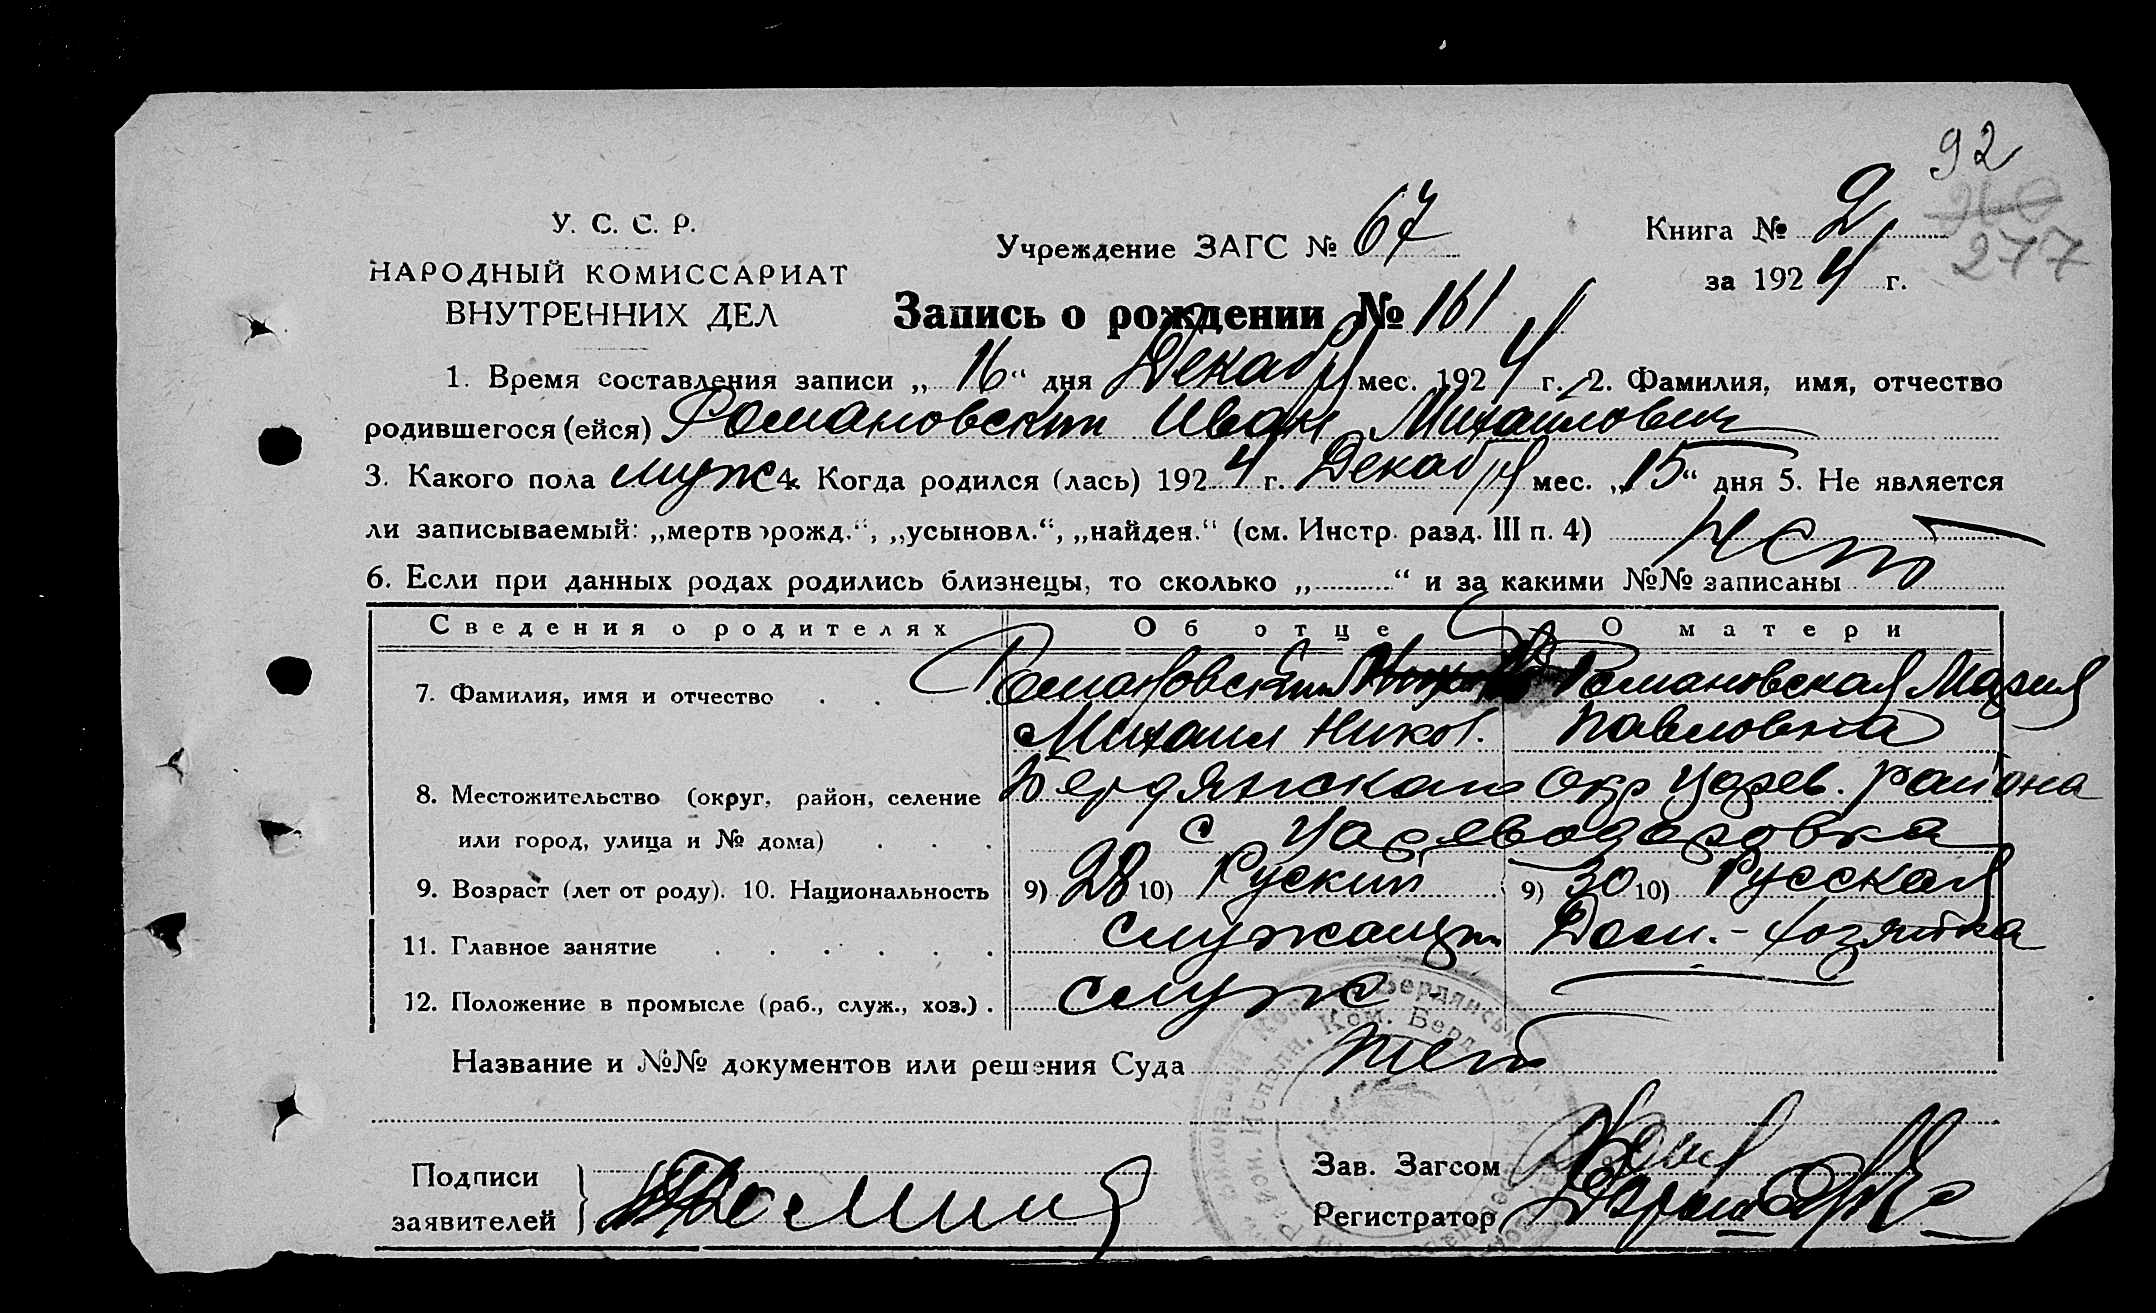 92
260
277
У. С. С. Р.
НАРОДНЫЙ КОМИССАРИАТ
ВНУТРЕННИХ ДЕЛ
Учреждение ЗАГС № 67
Книга № 2
за 1924 г.
Запись о рождении № 161
1. Время составления записи „ 16 “ дня Декабря мес. 1924 г. 2. Фамилия, имя, отчество
родившегося (ейся) Романовский Иван Михайлович
3. Какого пола муж 4. Когда родился (лась) 1924 г. Декабря мес. „ 15 “ дня 5. Не является
ли записываемый: „мертворожд.“, „усыновл.“, „найден.“ (см. Инстр. разд. III п. 4) Нет
6. Если при данных родах родились близнецы, то сколько „ “ и за какими №№ записаны
Сведения о родителях Об отце О матери
7. Фамилия, имя и отчество Романовский Романовская Мария
Михаил Никол. Павловна
8. Местожительство (округ, район, селение Бердянского Окр Царев. района
или город, улица и № дома) с Цареводаровка
9. Возраст (лет от роду). 10. Национальность 9) 28 10) Руский 9) 30 10) Русская
11. Главное занятие Служащий Дом.-хозяйка
12. Положение в промысле (раб., служ., хоз.) служ
Название и №№ документов или решения Суда нет
Подписи
заявителей
Зав. Загсом
Регистратор